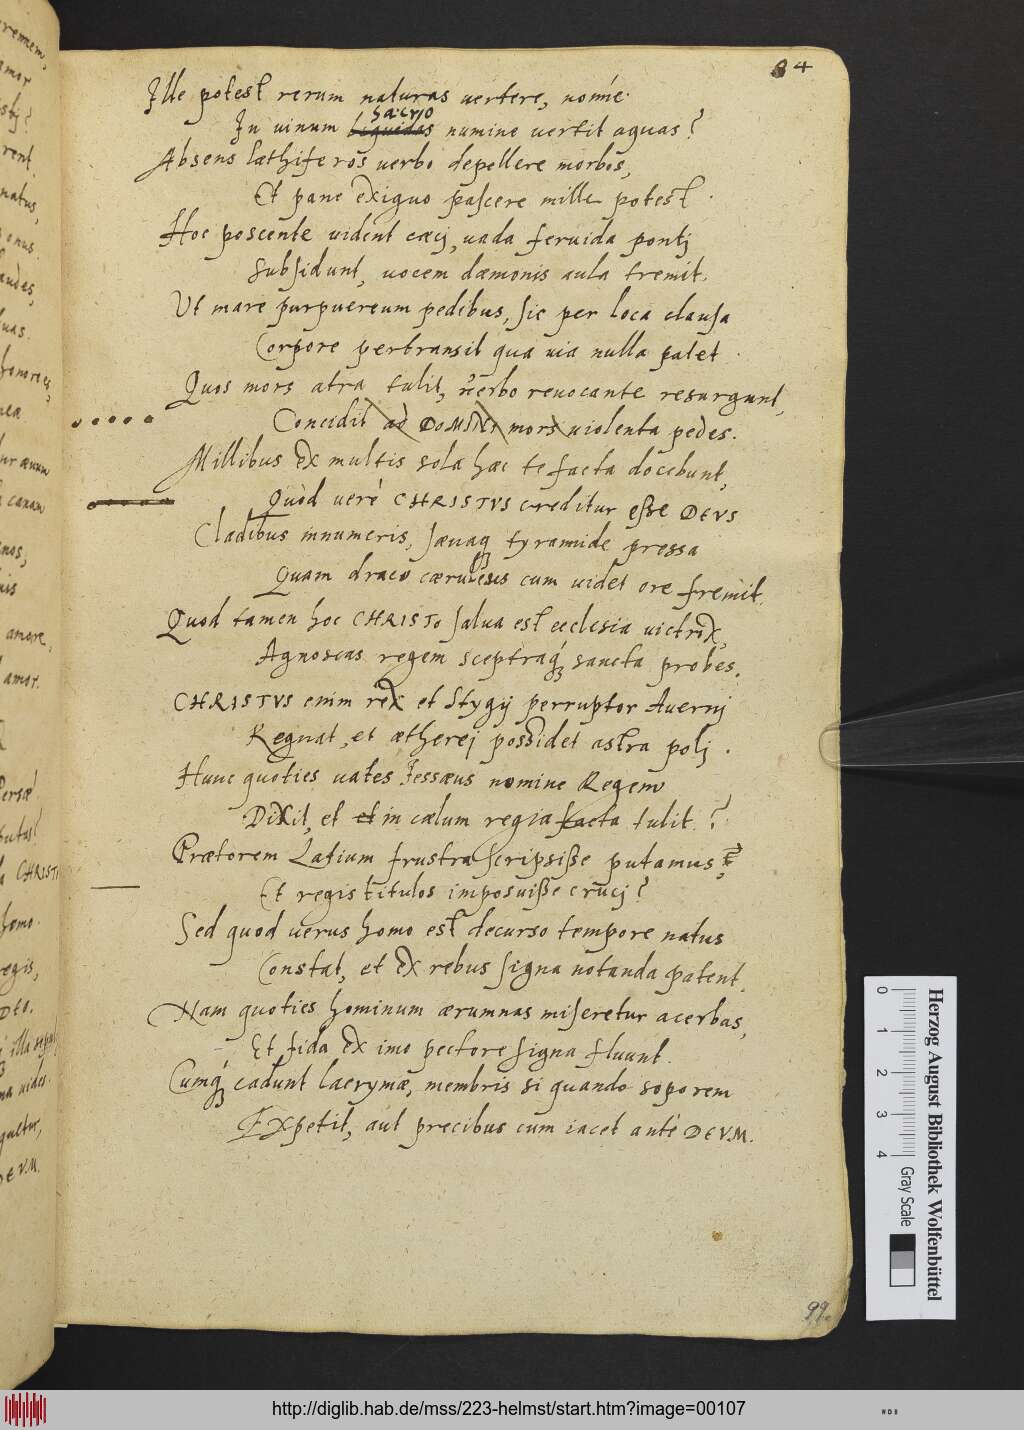 84
Ille potest rerum naturas uertere, nonne
sacro
In uinum liquidas numine uertit aquas?
Absens læthiferos uerbo depellere morbos,
Et pane exiguo pascere mille potest.
Hoc poscente uident cæcj, uada feruida pontj
Subsidunt, uocem dæmonis aula tremit.
Ut mare purpuereum pedibus, sic per loca clausa
Corpore pertransit qua uia nulla patet.
Quos mors atra tulit, uerbo reuocante resurgunt,
Concidit ad DOMINI mors uiolenta pedes.
Millibus ex multis sola hæc te facta docebunt,
Quòd uerè CHRISTVS creditur esse DEVS
Cladibus innumeris, sæuaq́ʒ tyrannide pressa
Quam draco cæruleus cum uidet ore fremit.
Quod tamen hoc CHRISTO salua est ecclesia uictrix,
Agnoscas regem sceptraq́ʒ sancta probes.
CHRISTVS enim rex et Stygij perruptor Auernj
Regnat, et ætherej possidet astra polj.
Hunc quoties uates Iessæus nomine Regem
Dixit, et et in cælum regia facta tulit?
Prætorem Latium frustra scripsisse putamus,
Et regis titulos imposuisse crucj?
Sed quod uerus homo est decurso tempore natus
Constat, et ex rebus signa notanda patent.
Nam quoties hominum ærumnas miseretur acerbas,
Et fida ex imo pectore signa fluunt.
Cumq́ʒ cadunt lacrymæ, membris si quando soporem
Expetit, aut precibus cum iacet ante DEVM.
99.
Herzog August Bibliothek Wolfenbüttel
Gray Scale
0 1 2 3 4
http://diglib.hab.de/mss/223-helmst/start.htm?image=00107